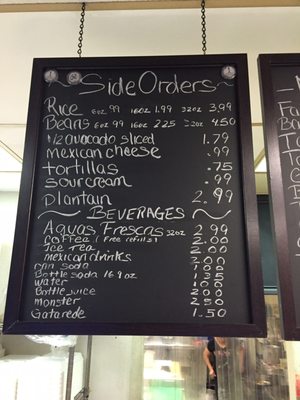 Side Orders
Rice 6oz .99 16oz 1.99 32oz 3.99
Beans 6oz .99 16oz 2.25 32oz 4.50
1/2 avocado sliced 1.79
mexican cheese .99
tortillas .75
sour cream .99
plantain 2.99
BEVERAGES
Aguas Frescas 32oz 2.99
Coffee (Free refills) 2.00
Ice Tea 2.00
mexican drinks 2.00
can soda 1.00
Bottle soda 16.9oz 1.35
water 1.00
Bottle juice 2.00
monster 2.50
Gatarede 1.50